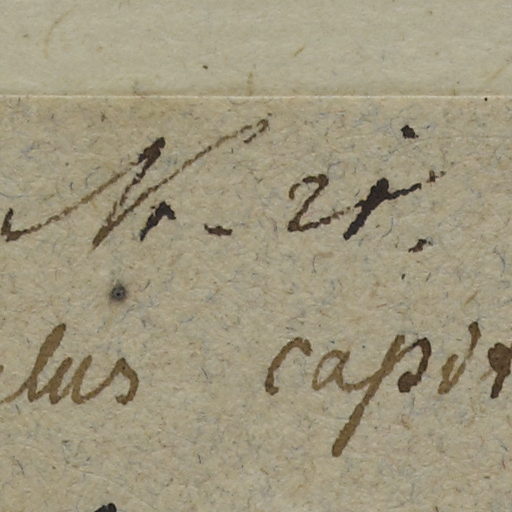 Nr. 21.
lus capit